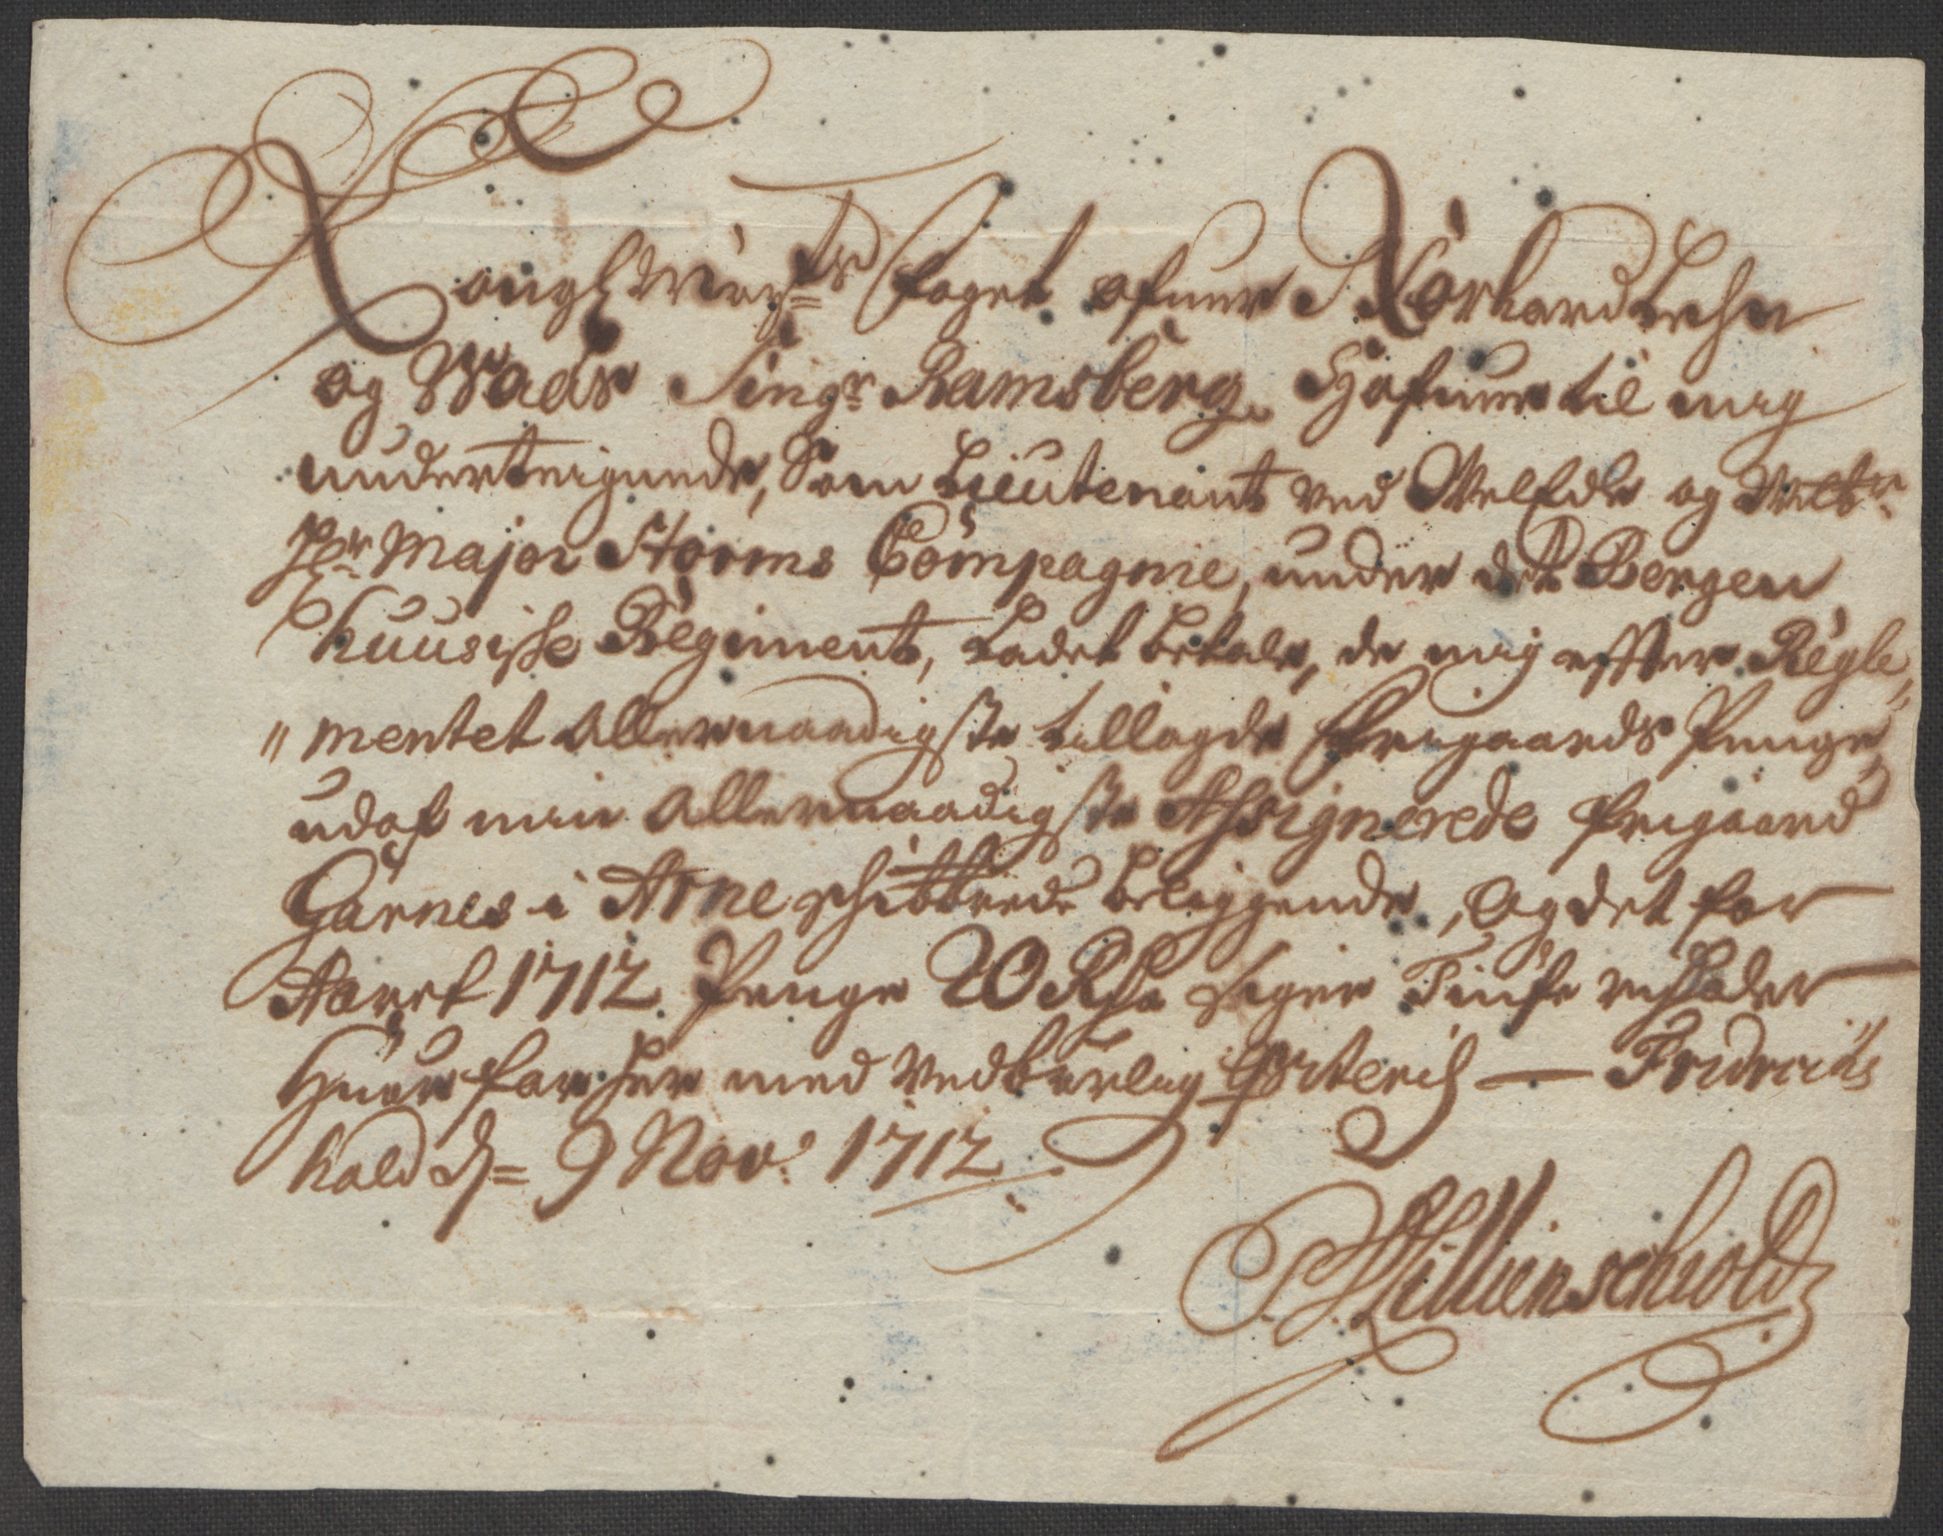 Kongl Mayts foget ofuer Nörhordlehn
og Waās Singr Ramsberg. Hafuer til mig
underteignede, Som Lieutenant ved Velædle og
Hr Major Storms Compagnie, under det Bergen
huusiske Regiment, ladet betale, de mig effter Regle„
„mentet allernaadigste tillagde frigaards Penge,
udaf min allernaadigste Assignerede frigaard
Garnes i Arne schibbrede beliggende, og det for
Aaret 1712 Penge 20 Rdr siger Tiufe rixdaler
huor for her med vedbørlig qviteris — Fridrichs
hald d= 9 Nov: 1712
Lillienschiold